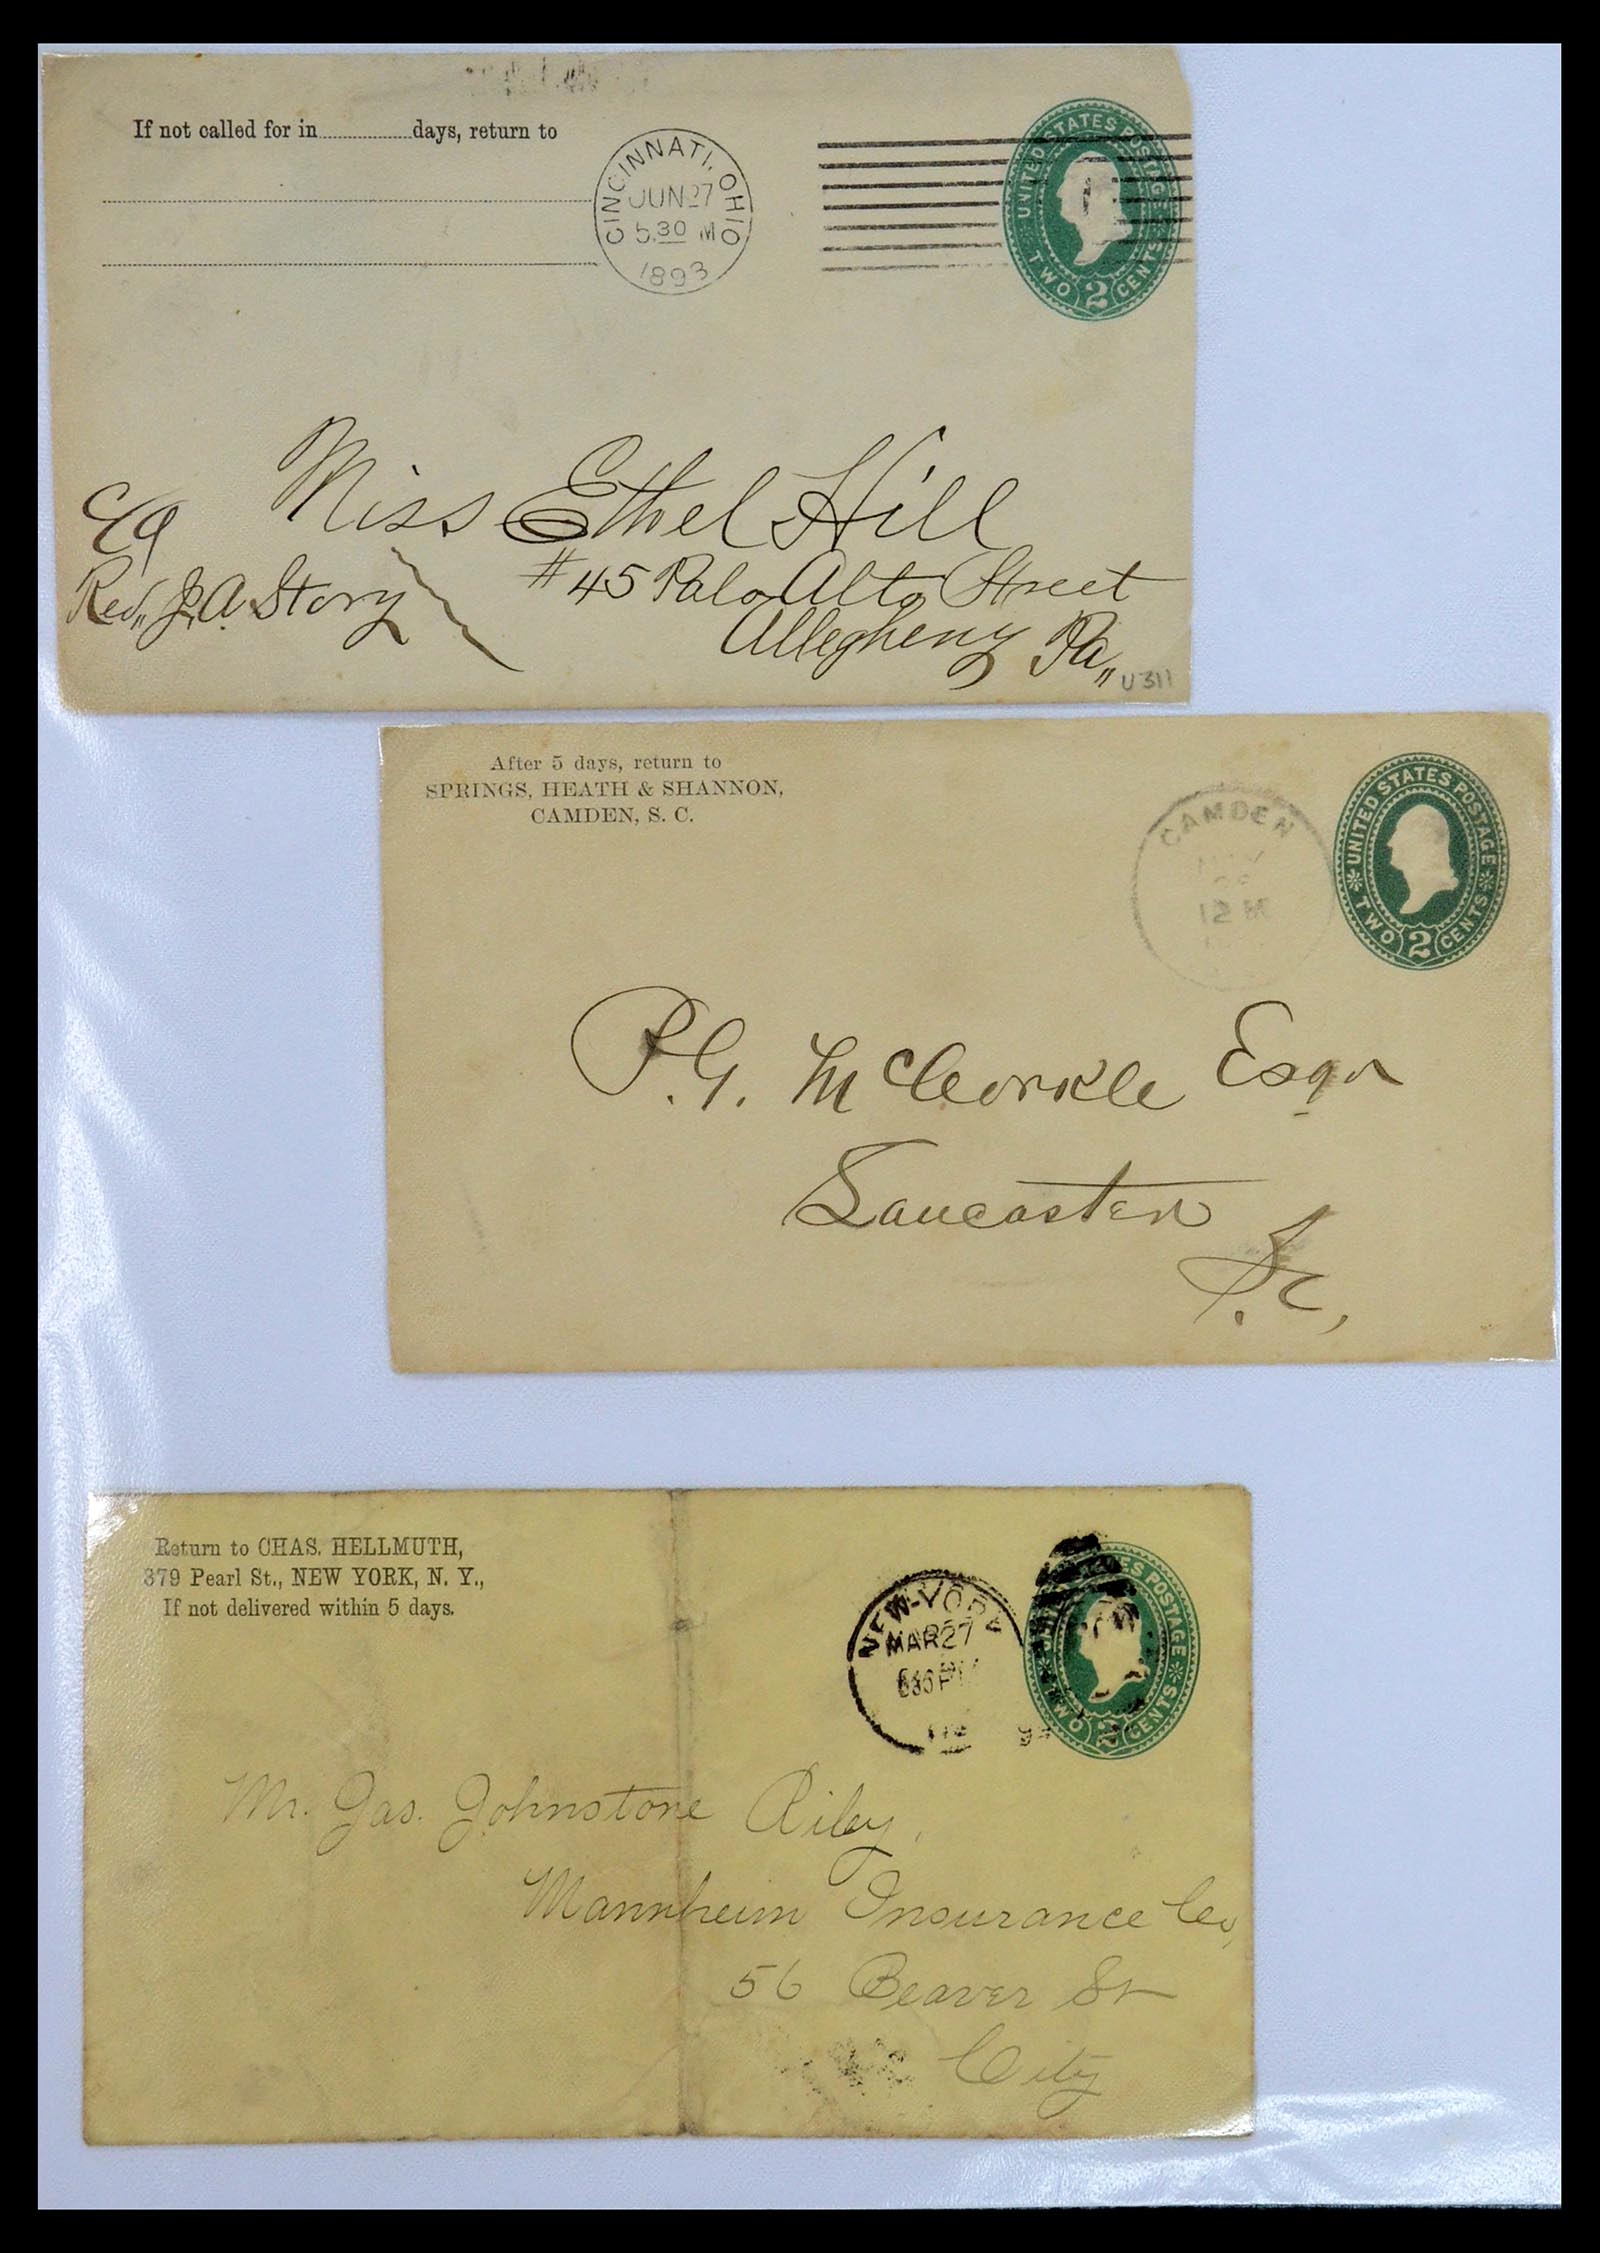 If not called for in ............ days, return to
CINCINNATI, OHIO
JUN 27
5.30 M
1893
UNITED STATES POSTAGE
TWO 2 CENTS
Miss Ethel Hill
C/o
Rev,, J. A. Story
# 45 Palo Alto Street
Allegheny Pa,,
U311
After 5 days, return to
SPRINGS, HEATH & SHANNON,
CAMDEN, S. C.
CAMDEN
12 M
UNITED STATES POSTAGE
TWO 2 CENTS
P. G. McCorkle Esqr
Lancaster
S. C,
Return to CHAS. HELLMUTH,
379 Pearl St., NEW YORK, N. Y.,
If not delivered within 5 days.
NEW-YORK
MAR 27
ES POSTAGE
TWO 2 CENTS
Mr. Jas. Johnstone Riley,
Mannheim Insurance Co,
56 Beaver St
City